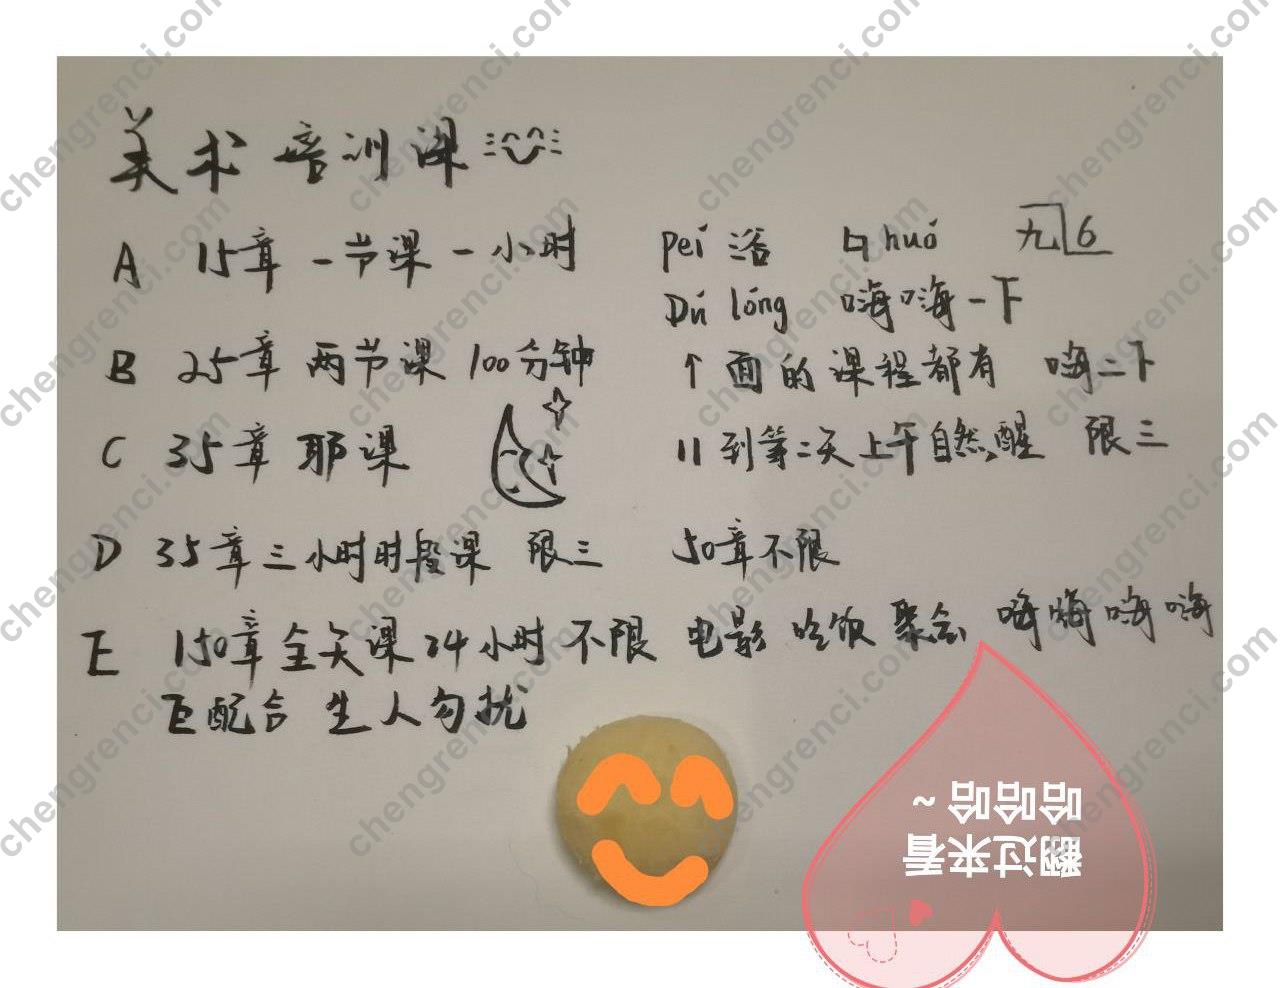 美术培训课
A 15章 一节课 一小时
B 25章 两节课 100分钟
C 35章 耶课
D 35章三小时时段课 限三 50章不限
E 150章全天课 24小时不限 电影 吃饭 聚会 嗨嗨嗨嗨
巨配合 生人勿扰
pei 活 口huó 九6
Dú lóng 嗨嗨一下
↑面的课程都有 嗨二下
11到第二天上午自然醒 限三
翻过来看
哈哈哈~
chengrenci.com